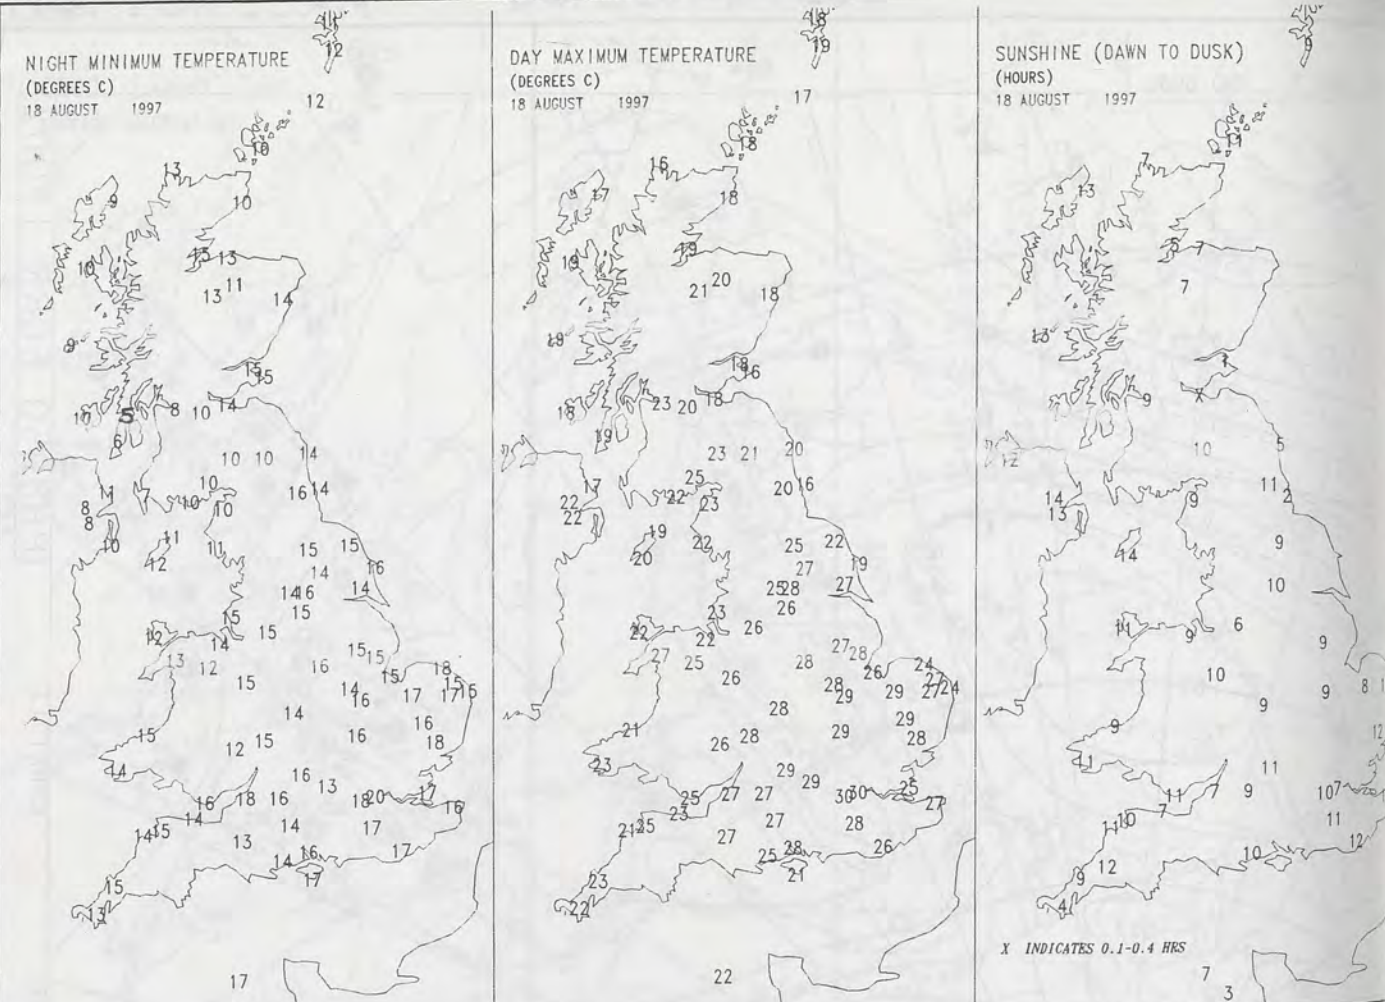 NIGHT MINIMUM TEMPERATURE
(DEGREES C)
18 AUGUST 1997
12
12
10
13
9
10
15
13
10
11
13
14
9
15
15
10
5
8
10
14
6
10
10
14
10
11
7
10
16
14
8
10
8
10
11
11
15
15
12
16
14
14
16
14
15
15
12
15
14
15
15
13
12
16
18
15
15
15
14
16
17
17
15
14
16
15
12
15
16
18
14
16
13
16
18
16
18
20
17
16
14
14
15
14
17
13
16
17
14
17
15
13
17
DAY MAXIMUM TEMPERATURE
(DEGREES C)
18 AUGUST 1997
18
19
17
18
16
17
18
19
19
20
21
18
19
18
16
18
23
20
18
19
23
21
20
25
17
22
20
16
22
23
22
19
22
25
22
20
27
19
25
28
27
26
23
26
22
22
27
28
27
25
28
26
24
26
27
28
29
29
27
24
28
29
21
26
28
29
28
23
29
29
25
27
27
30
30
25
27
23
21
25
27
28
27
25
28
26
23
21
22
22
SUNSHINE (DAWN TO DUSK)
(HOURS)
18 AUGUST 1997
9
11
7
13
5
7
7
13
1
X
9
10
5
12
11
2
14
9
13
14
9
10
6
11
9
9
10
8
9
9
9
12
11
11
11
7
9
10
7
7
10
11
11
12
10
12
9
4
X INDICATES 0.1-0.4 HRS
7
3